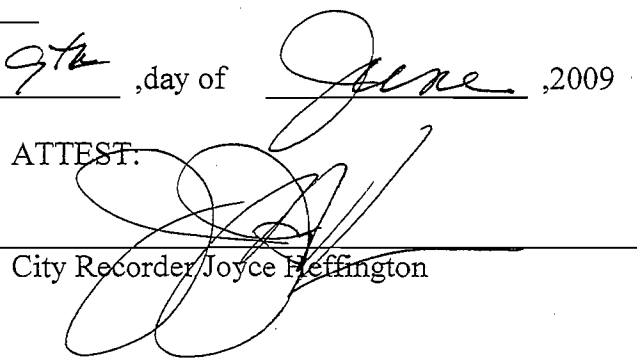 9th ,day of June ,2009
ATTEST:
City Recorder Joyce Heffington